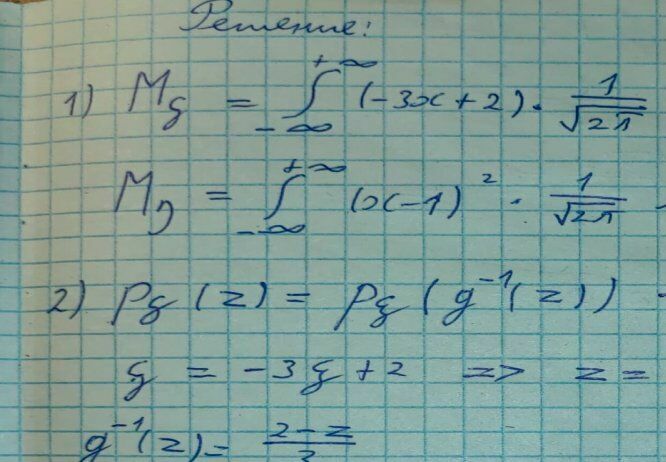 Решение:
1) Mξ = ∫_{-∞}^{+∞} (-3x+2) · 1/√2π
Mη = ∫_{-∞}^{+∞} (x-1)² · 1/√2π ·
2) pξ(z) = pξ(g⁻¹(z)) ·
ξ = -3ξ+2 => z =
g⁻¹(z) = (2-z)/3